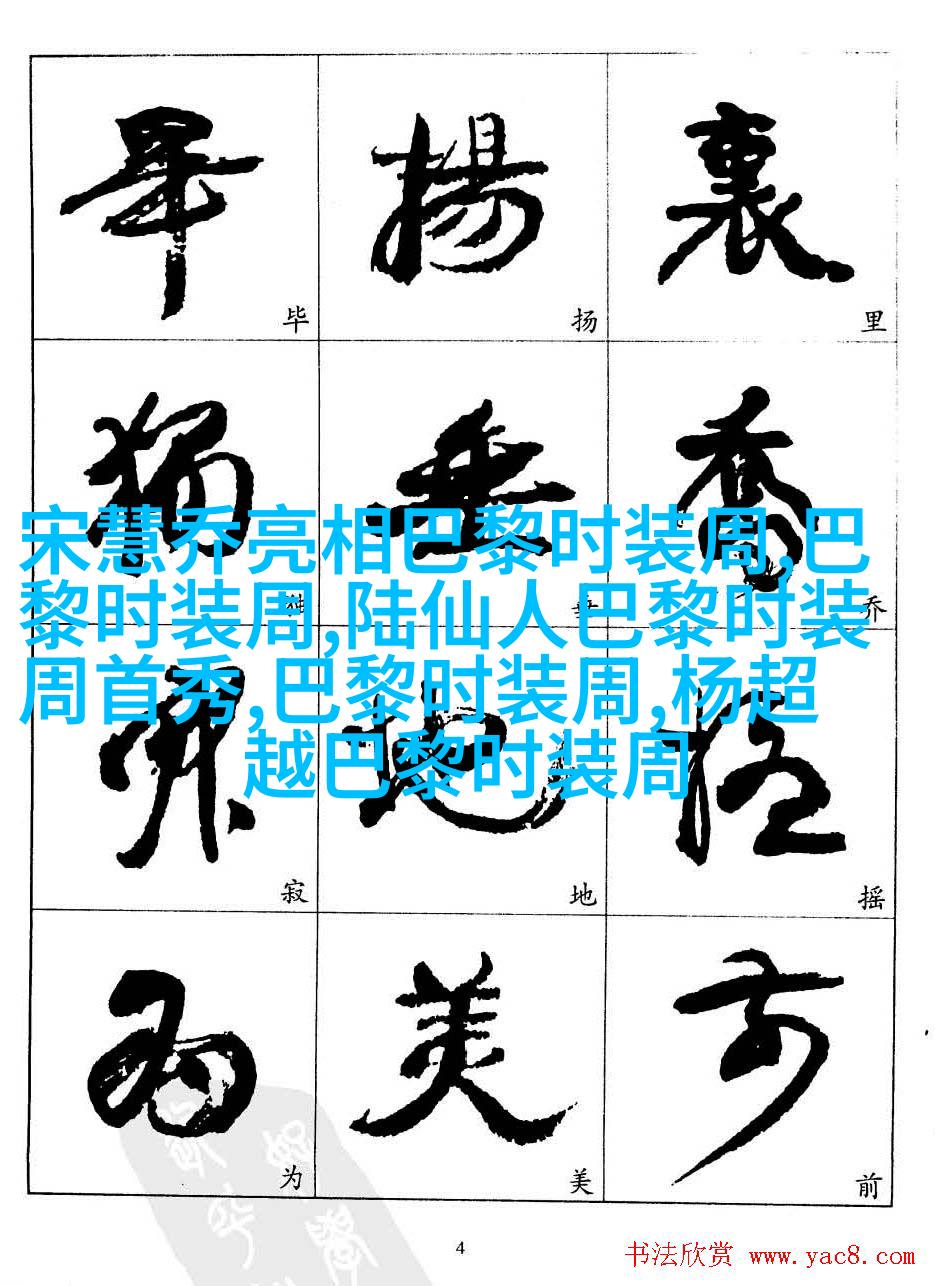 畢 揚 裏
毕 扬 里
獨 垂 喬
独 垂 乔
宋慧乔亮相巴黎时装周,巴
黎时装周,陆仙人巴黎时装
周首秀,巴黎时装周,杨超
越巴黎时装周
寂 地 摇
寂 地 摇
为 美 前
为 美 前
4
书法欣赏 www.yac8.com